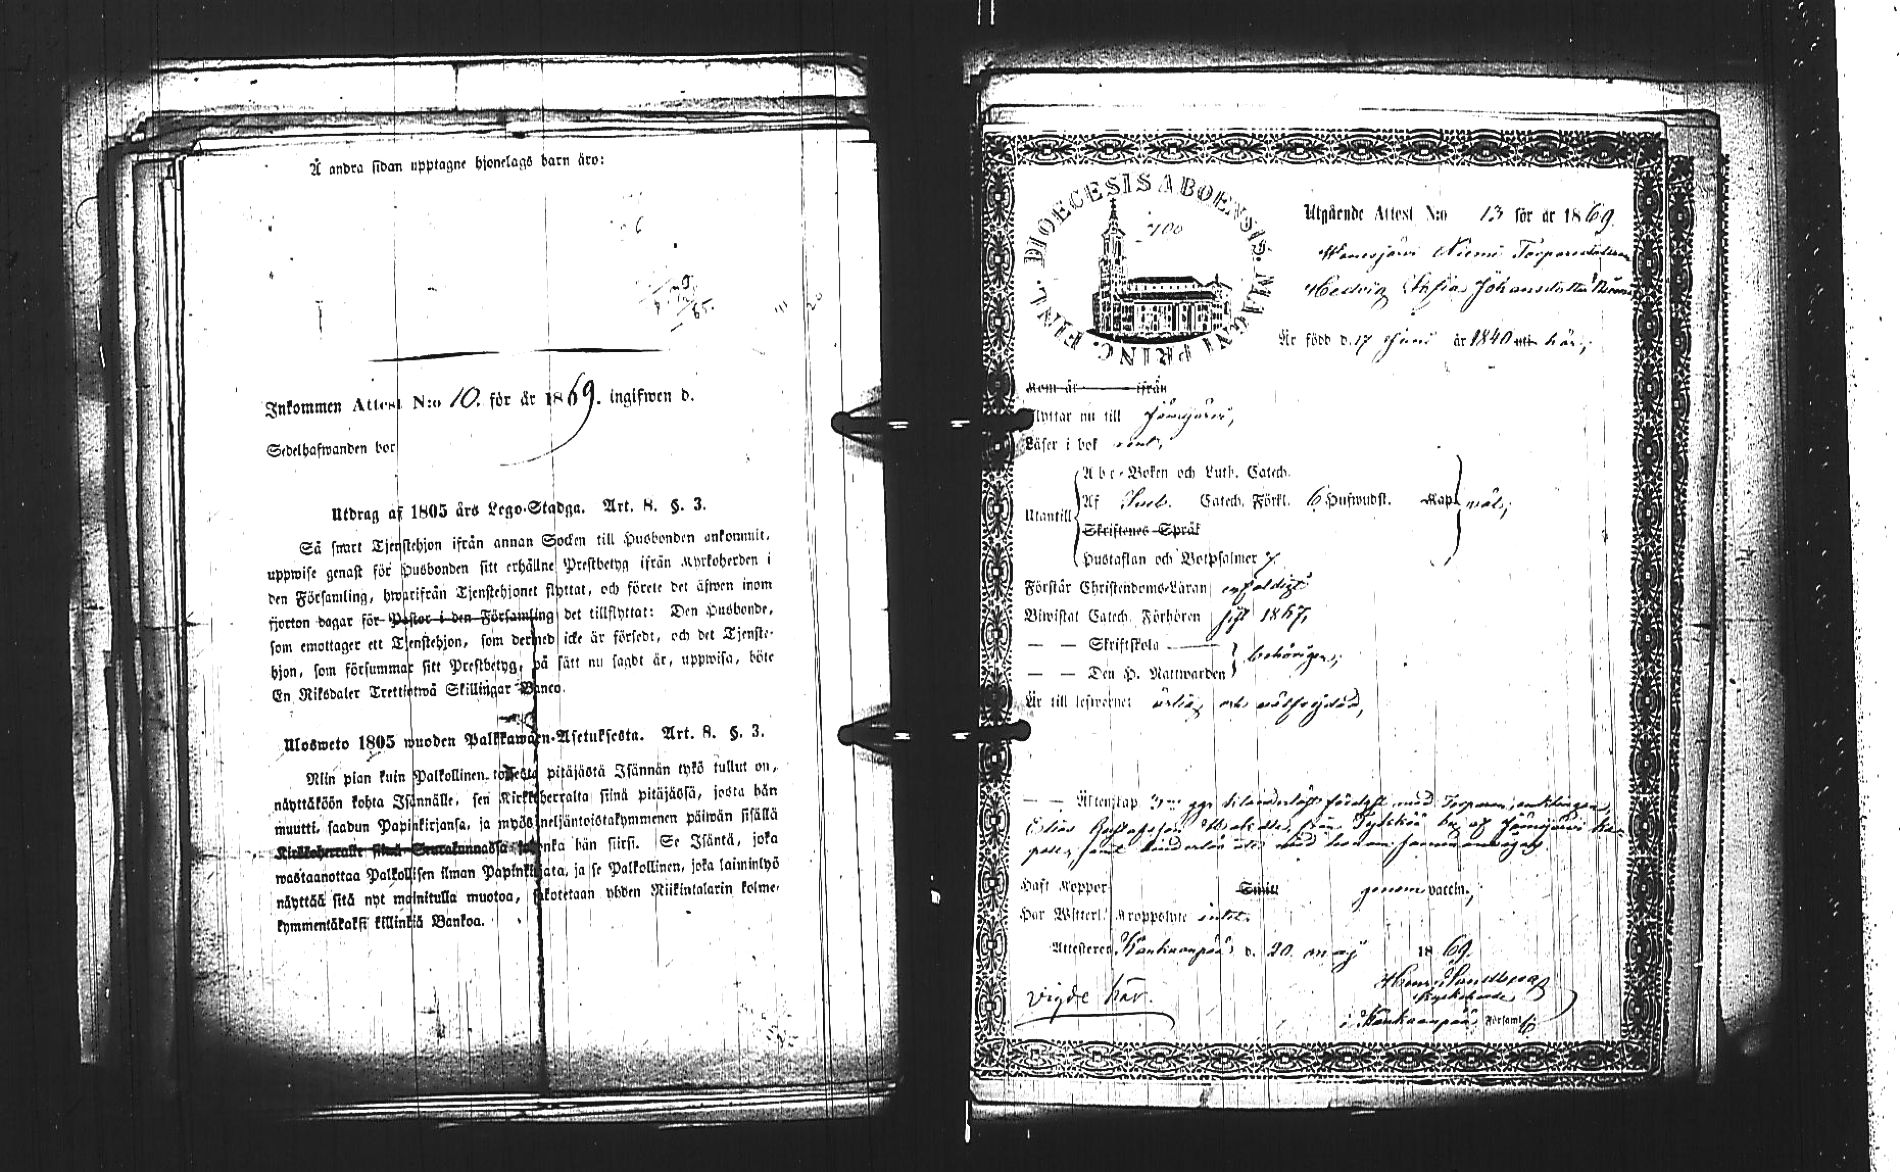 Å andra sidan upptagne hjonelags barn äro:
Inkommen Attest N:o 10. för år 1869. ingifwen d.
Sedelhafwanden bor
Utdrag af 1805 års Lego-Stadga. Art. 8. §. 3.
Så snart Tjenstehjon ifrån annan Socken till Husbonden ankommit,
uppwise genast för Husbonden sitt erhållne Prestbetyg ifrån Kyrkoherden i
den Församling, hwarifrån Tjenstehjonet flyttat, och förete det äfwen inom
fjorton dagar för Pastor i den Församling det tillflyttat: Den Husbonde,
som emottager ett Tjenstehjon, som dermed icke är försedt, och det Tjenste-
hjon, som försummar sitt Prestbetyg, på sätt nu sagdt är, uppwisa, böte
En Riksdaler Trettiotwå Skillingar Banco.
Ulosweto 1805 wuoden Palkkawäen-Asetuksesta. Art. 8. §. 3.
Niin pian kuin Palkollinen toisesta pitäjästä Isännän tykö tullut on,
näyttäköön kohta Isännälle, sen Kirkkoherralta siinä pitäjässä, josta hän
muutti, saadun Papinkirjansa, ja myös neljäntoistakymmenen päiwän sisällä
Kirkkoherralle siinä Seurakunnassa johonka hän siirsi. Se Isäntä, joka
wastaanottaa Palkollisen ilman Papinkirjata, ja se Palkollinen, joka laiminlyö
näyttää sitä nyt mainitulla muotoa, sakotetaan yhden Riikintalarin kolme-
kymmentäkaksi killinkiä Bankoa.
DIOECESIS ABOENSIS. MAGNI PRINC. FINL.
Utgående Attest N:o 13 för år 1869.
Niemi Torparedottren
Hedvig Sofia Johansdotter
Är född d. 17 Juni år 1840 uti här;
Kom år ifrån
Flyttar nu till Jämijärvi,
Läser i bok
Utantill
Abc-Boken och Luth. Catech.
Af Catech. Förkl. 6 Hufwudst. Kap. väl;
Skriftenes Språk
Hustaflan och Botpsalmer 7.
Förstår Christendoms-Läran enfaldigt
Biwistat Catech. Förhören sist 1867,
— — Skriftskola
— — Den H. Nattwarden behörigen;
Är till lefwernet ärlig och välfrejdad,
— — Äktenskap med
Elias Gustafsson från af Jämijärvi ka-
pell, samt med honom
Haft Koppor Smitt genom vaccin.;
Har Wetterl. Kroppslyte intet.
Attesterer Kankaanpää d. 20 maj 1869.
Kyrkoherde
i Kankaanpää Församl.
Vigde här.